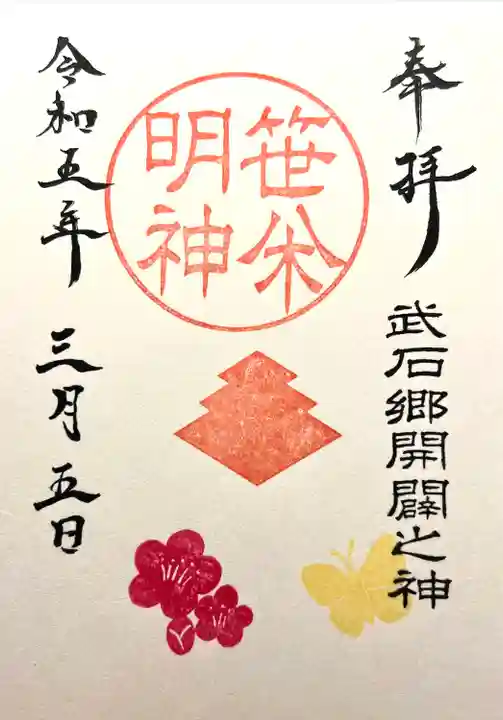 奉拝
武石郷開闢之神
笹
明神
令和五年 三月五日